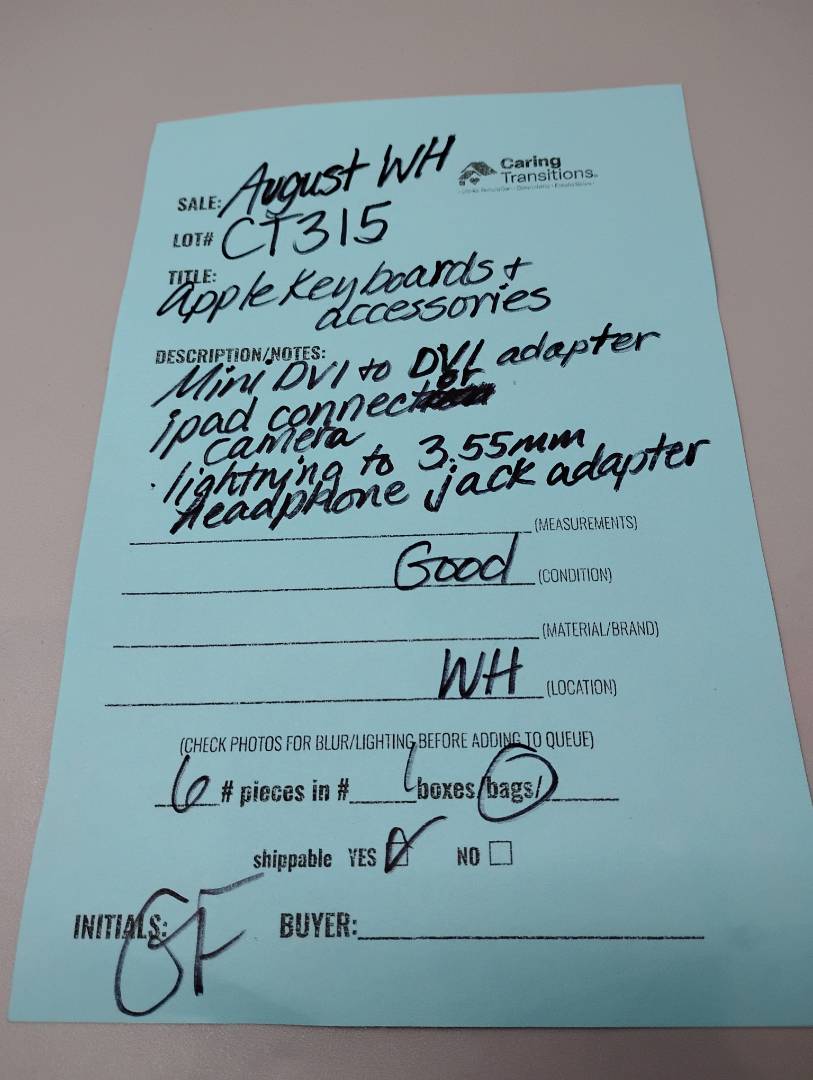 SALE: August WH
Caring
Transitions
LOT# CT315
TITLE:
Apple Keyboards +
accessories
DESCRIPTION/NOTES:
Mini DVI to DVI adapter
ipad connector
camera
· lightning to 3.55mm
headphone jack adapter
(MEASUREMENTS)
Good (CONDITION)
(MATERIAL/BRAND)
WH (LOCATION)
(CHECK PHOTOS FOR BLUR/LIGHTING BEFORE ADDING TO QUEUE)
6 # pieces in # 1 boxes/bags/
shippable YES NO
INITIALS: GF BUYER: